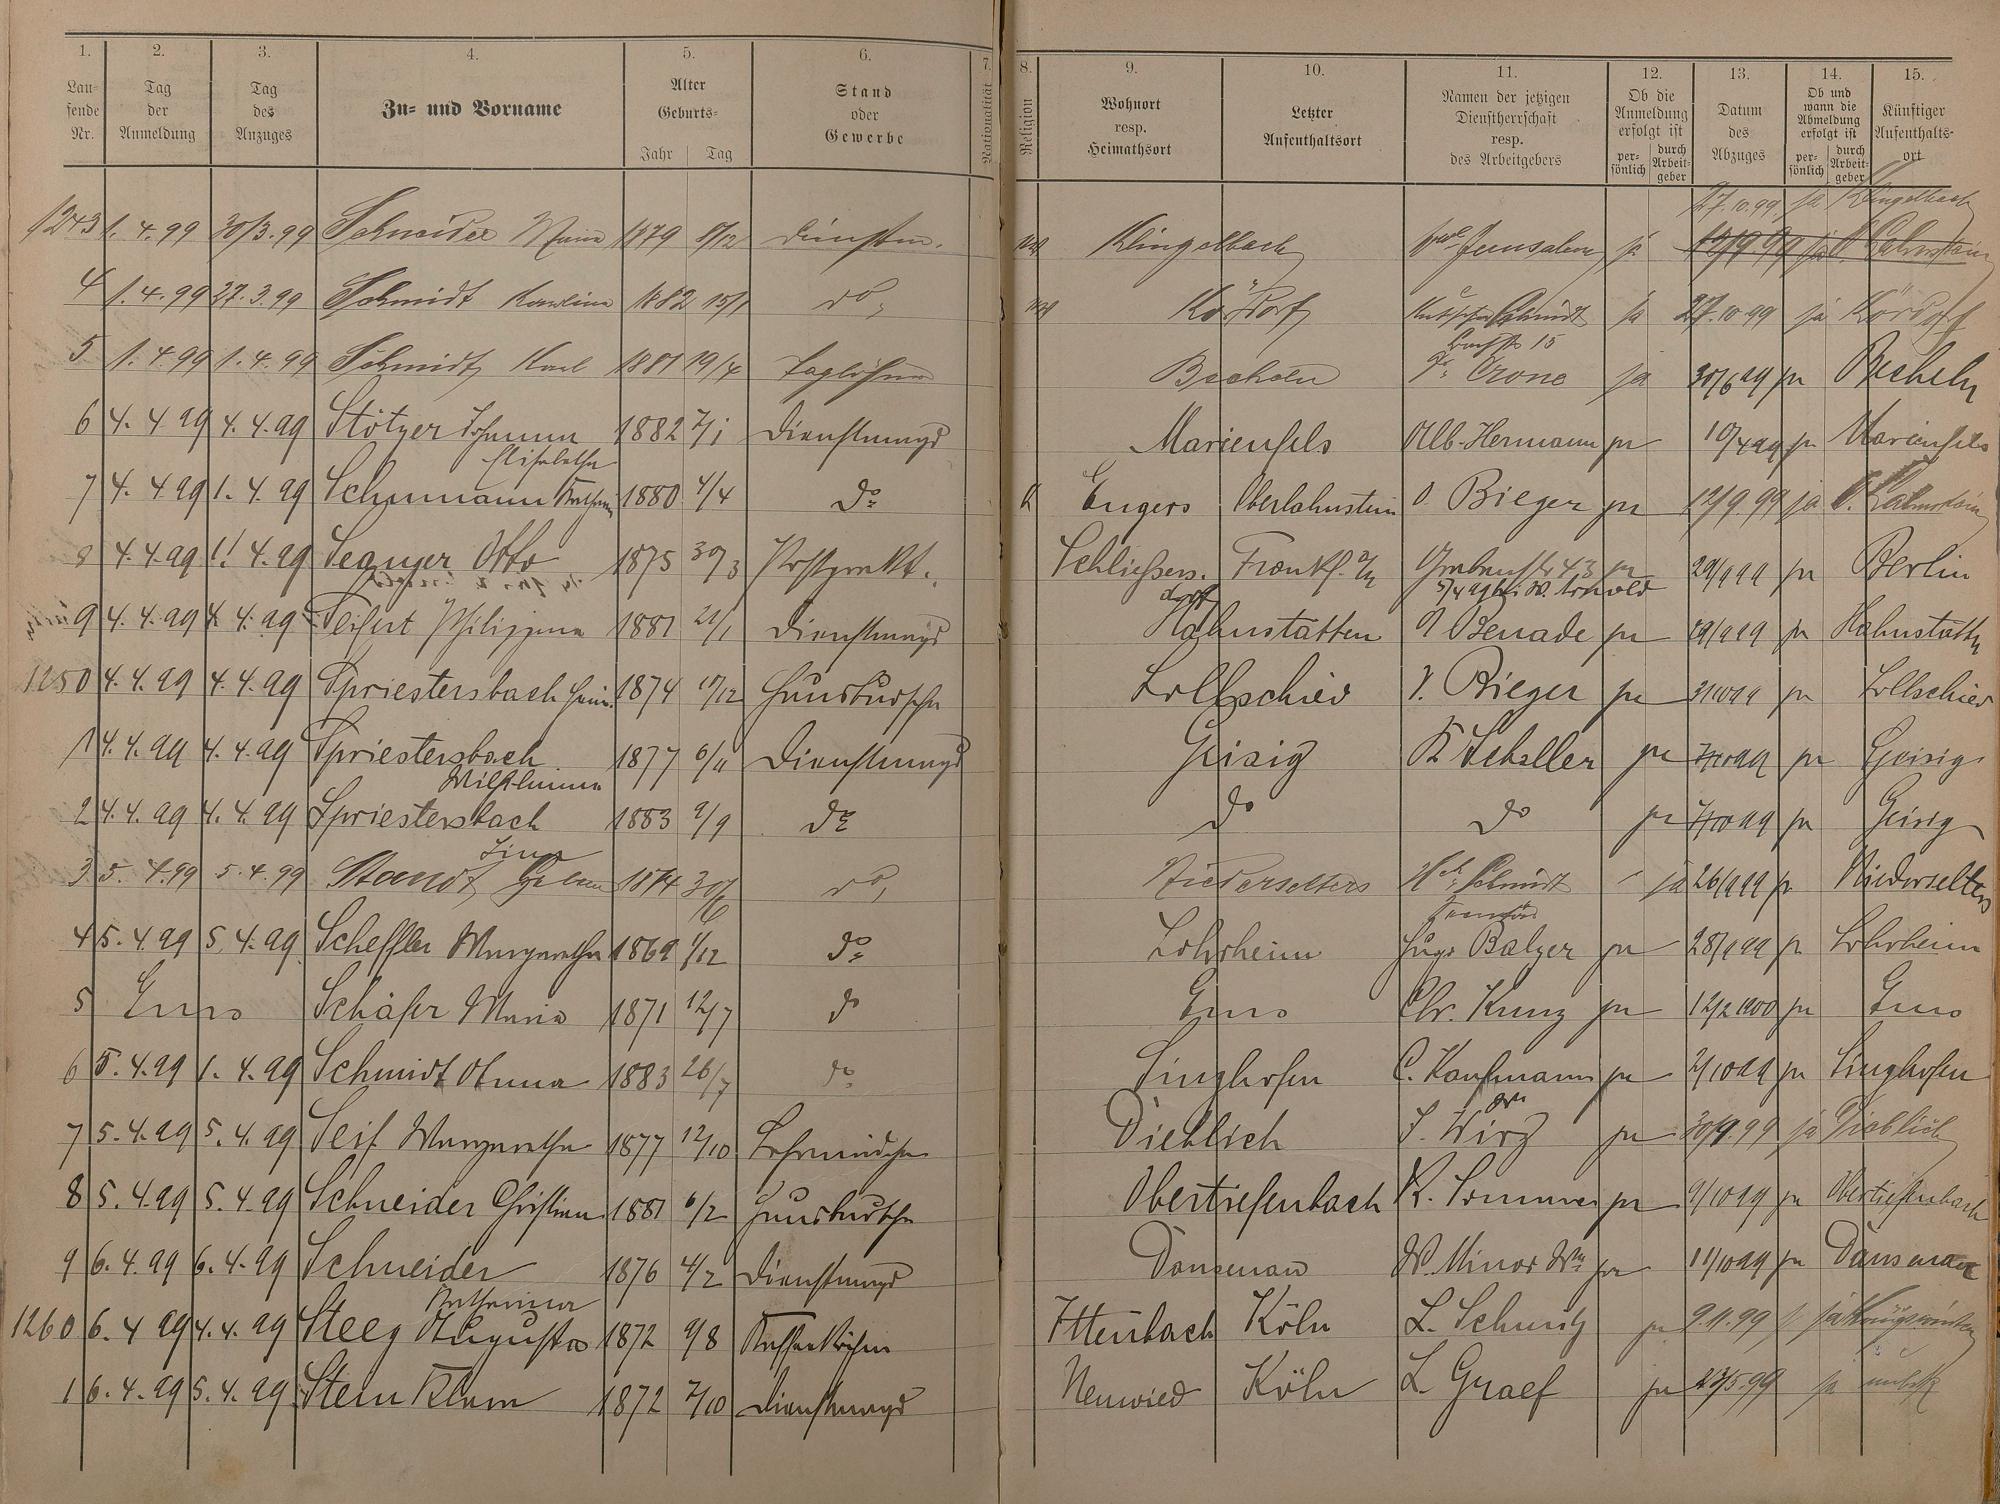 1. 2. 3. 4. 5. 6. 7. 8. 9. 10. 11. 12. 13. 14. 15.
Lau-
fende
Nr.
Tag
der
Anmeldung
Tag
des
Anzuges
Zu- und Vorname
Alter
Geburts-
Jahr Tag
Stand
oder
Gewerbe
Nationalität
Religion
Wohnort
resp.
Heimathsort
Letzter
Aufenthaltsort
Namen der jetzigen
Dienstherrschaft
resp.
des Arbeitgebers
Ob die
Anmeldung
erfolgt ist
per-
sönlich
durch
Arbeit-
geber
Datum
des
Abzuges
Ob und
wann die
Abmeldung
erfolgt ist
per-
sönlich
durch
Arbeit-
geber
Künftiger
Aufenthalts-
ort
27.10.99 ja Klingelbach
1243 1.4.99 30/3.99 Schneider 1879 8/12 Dienstm. Klingelbach Jerusalem ja 12/9 99 ja Lahnstein
4 1.4.99 27.3.99 Schmidt Karline 1882 15/1 do. Kördorf Schmidt ja 27.10.99 ja Kördorf
5 1.4.99 1.4.99 Schmidt Karl 1881 19/4 Taglöhner Becheln 15 Crone ja 30/6 99 ja Becheln
6 4.4 99 4.4.99 Stötzer Johanna 1882 7/1 Dienstmagd Marienfels Alb. Hermann ja 10/4 99 ja Marienfels
Elisabetha
7 4.4 99 1.4.99 Schumann Kathar. 1880 4/4 do K Engers Oberlahnstein O. Bieger ja 12/9 99 ja O. Lahnstein
8 4.4.99 1.4.99 Otto 1875 30/3 Postprakt. Schliessers. Frankf. a/M 43 ja 29/9 99 ja Berlin
dorf 5/4 99 bei W. Arnold
9 4.4.99 4.4.99 Seifert Philippine 1881 21/1 Dienstmagd Hahnstätten Benade ja 29/9 99 ja Hahnstätten
1250 4.4.99 4.4.99 Spriestersbach Heinr. 1874 17/12 Hausbursche Lollschied V. Bieger ja ja Lollschied
1 4.4.99 4.4.99 Spriestersbach 1877 6/11 Dienstmagd Geisig K Scheller ja 7/10 99 ja Geisig
Wilhelmine
2 4.4.99 4.4.99 Spriestersbach 1883 9/9 do do do ja 7/10 99 ja Geisig
Lina
3 5.4.99 5.4.99 1874 30/6 do. Niederselters Schmidt ja 26/9 99 ja Niederselters
4 5.4.99 5.4.99 Scheffler Margaretha 1869 1/12 do Lohrheim Hugo Balzer ja 28/9 99 ja Lohrheim
5 Ems Schäfer Maria 1871 12/7 do Ems Chr. Kunz ja 12/2 1900 ja Ems
6 5.4.99 1.4.99 Schmidt Anna 1883 26/7 do Singhofen C. Kaufmann ja 2/10 99 ja Singhofen
7 5.4.99 5.4.99 Seif Margaretha 1877 12/10 Lehrmädchen Dieblich J. Wirz ja 30/9.99 ja Dieblich
8 5.4.99 5.4.99 Schneider Christian 1881 6/2 Hausbursche Obertiefenbach K. Sommer ja 9/10 99 ja Obertiefenbach
9 6.4.99 6.4.99 Schneider 1876 4/2 Dienstmagd Dausenau W. Minor Ww ja 11/10 99 ja Dausenau
Katharina
1260 6.4 99 4.4.99 Steeg Augusta 1872 9/8 Kaffeeköchin Ittenbach Köln L. Schmitz ja 9.11.99 ja Königswinter
1 6.4.99 5.4.99 Stein Klara 1872 7/10 Dienstmagd Neuwied Köln L. Graef ja 27/5.99 ja